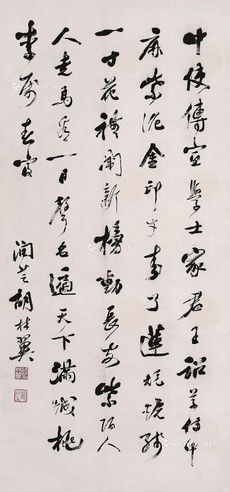 中使傳宣學士家君王詔草侍中
麻紫泥金印平章了蓮炬燒殘
一寸花禮闈新榜動長安紫陌人
人走馬看一日聲名遍天下滿城桃
李屬春官
潤芝胡林翼